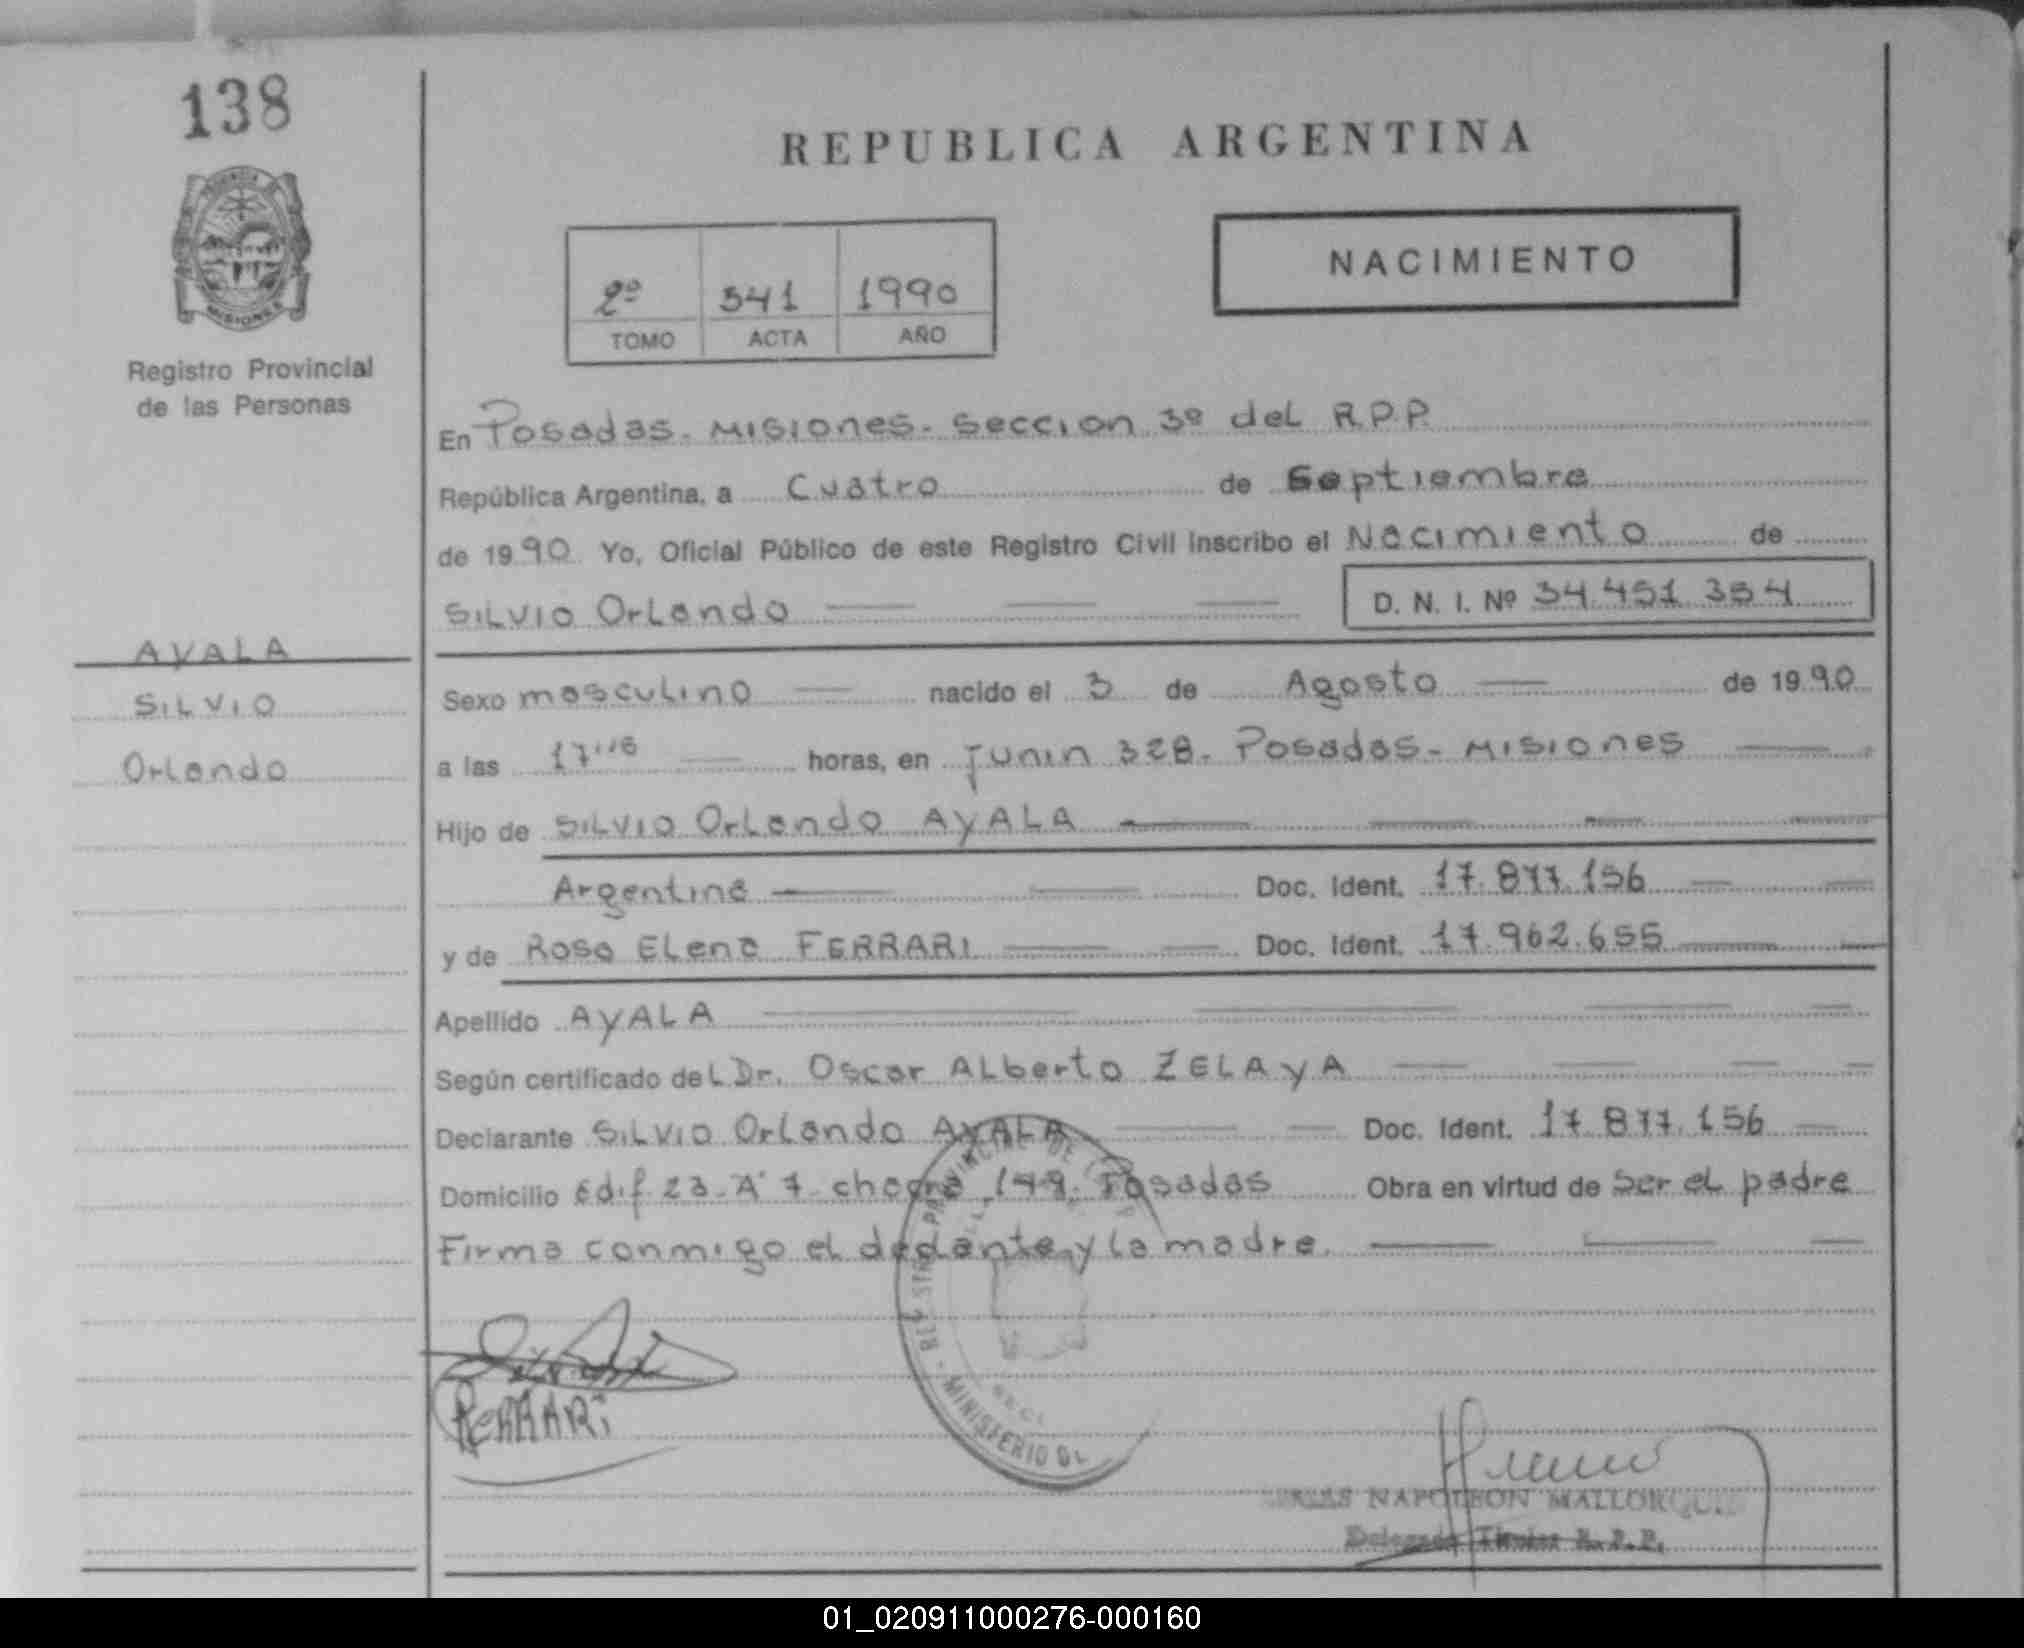 138
REPUBLICA ARGENTINA
MISIONES
Registro Provincial
de las Personas
NACIMIENTO
2º 341 1990
TOMO ACTA AÑO
En Posadas. Misiones. Seccion 3º del R.P.P.
República Argentina, a Cuatro de Septiembre
de 1990 Yo, Oficial Público de este Registro Civil inscribo el Nacimiento de
Silvio Orlando D. N. I. Nº 34.451.354
AYALA
Silvio
Orlando
Sexo masculino nacido el 3 de Agosto de 1990
a las 17 horas, en Junin 328. Posadas - Misiones
Hijo de Silvio Orlando AYALA
Argentina Doc. Ident. 17.877.156
y de Rosa Elena FERRARI Doc. Ident. 17.962.655
Apellido AYALA
Según certificado del Dr. Oscar Alberto ZELAYA
Declarante Silvio Orlando AYALA Doc. Ident. 17.877.156
Domicilio edif. 23. Aº 7. chacra 149. Posadas Obra en virtud de ser el padre
Firma conmigo el declante y la madre.
FERRARI
MINISTERIO DE
NAPOLEON MALLORQUIN
Delegado Técnico R.P.P.
01_020911000276-000160